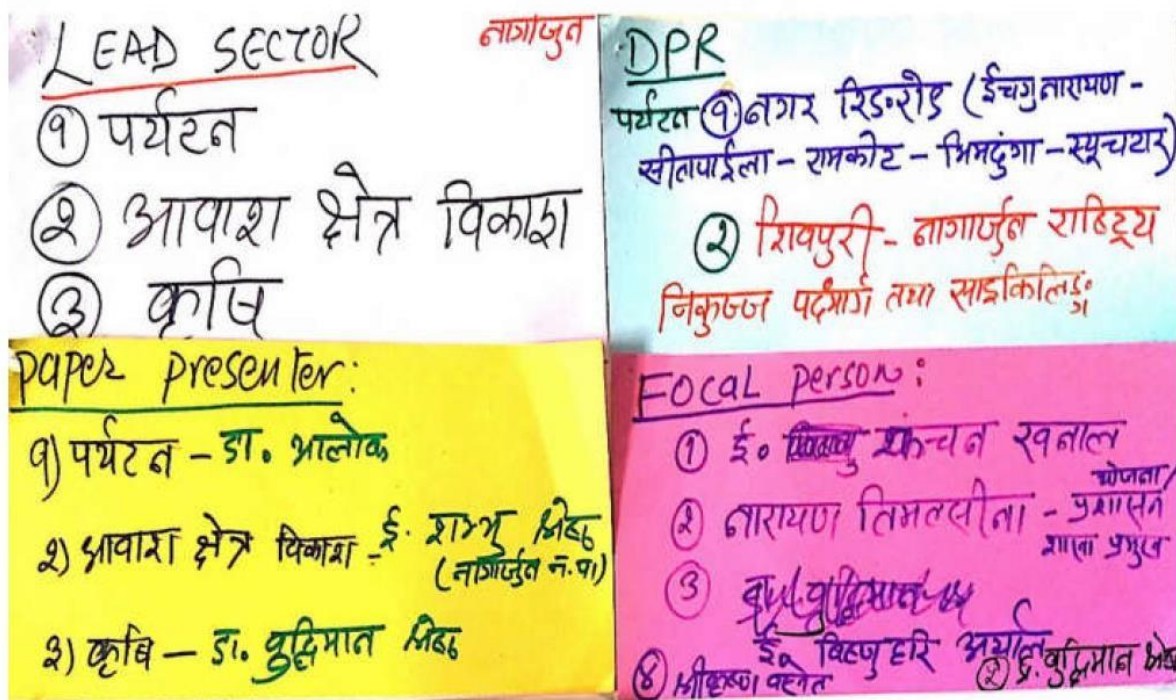 LEAD SECTOR
नागार्जुन
१ पर्यटन
२ आवाश क्षेत्र विकाश
३ कृषि
DPR
पर्यटन १ नगर रिङरोड (ईचंगुनारायण -
सीतापाईला - रामकोट - भिमढुंगा - स्यूचटार)
२ शिवपुरी - नागार्जुन राष्ट्रिय
निकुञ्ज पदमार्ग तथा साइकिलिङ्ग
Paper Presenter:
१) पर्यटन - डा. आलोक
२) आवाश क्षेत्र विकाश - ई. शम्भु श्रेष्ठ
(नागार्जुन न.पा)
३) कृषि - डा. बुद्धिमान श्रेष्ठ
Focal Person:
१ ई. कन्चन खनाल
२ नारायण तिमलसीना - योजना/
प्रशासन
शाखा प्रमुख
३
ई. विष्णु हरि अर्याल
४ श्रीकृष्ण
बुद्धिमान श्रेष्ठ